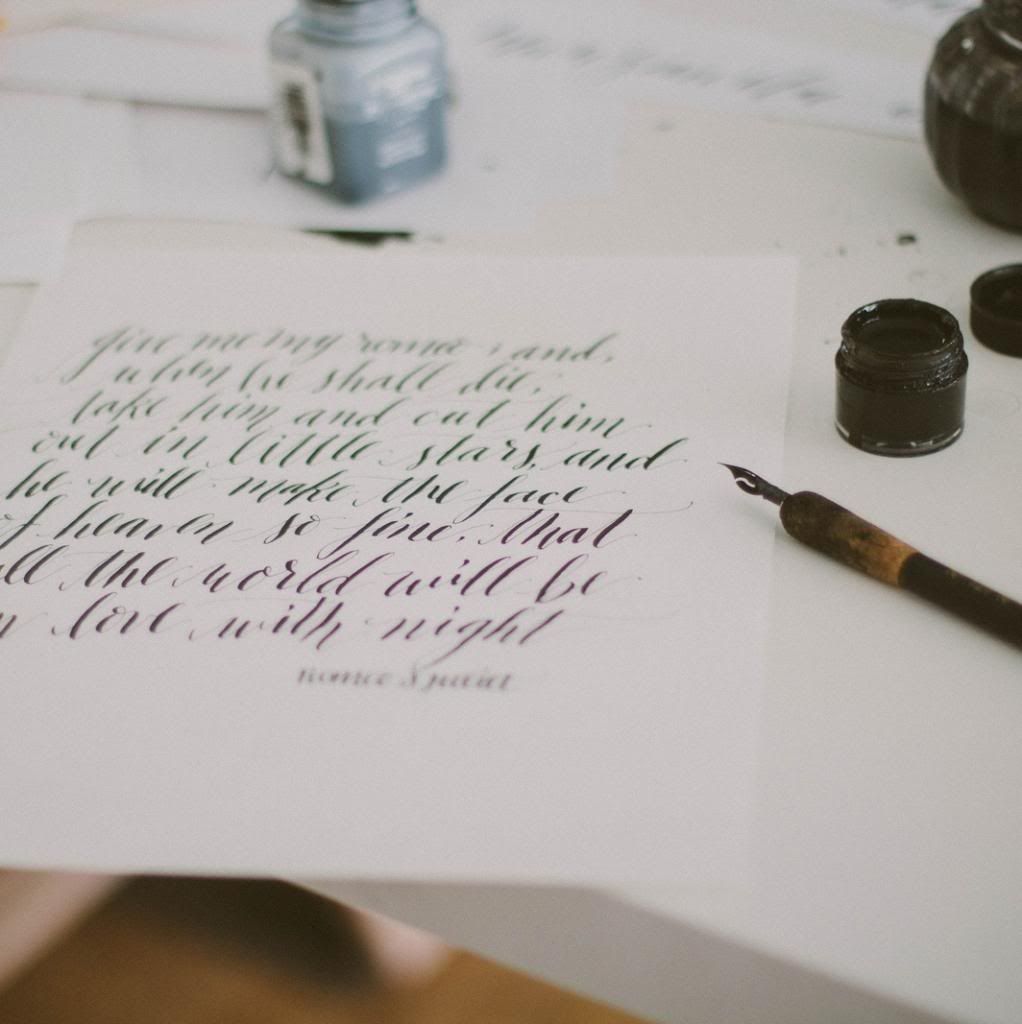 give me my romeo; and,
when he shall die,
take him and cut him
out in little stars, and
he will make the face
of heaven so fine, that
all the world will be
love with night
romeo & juliet